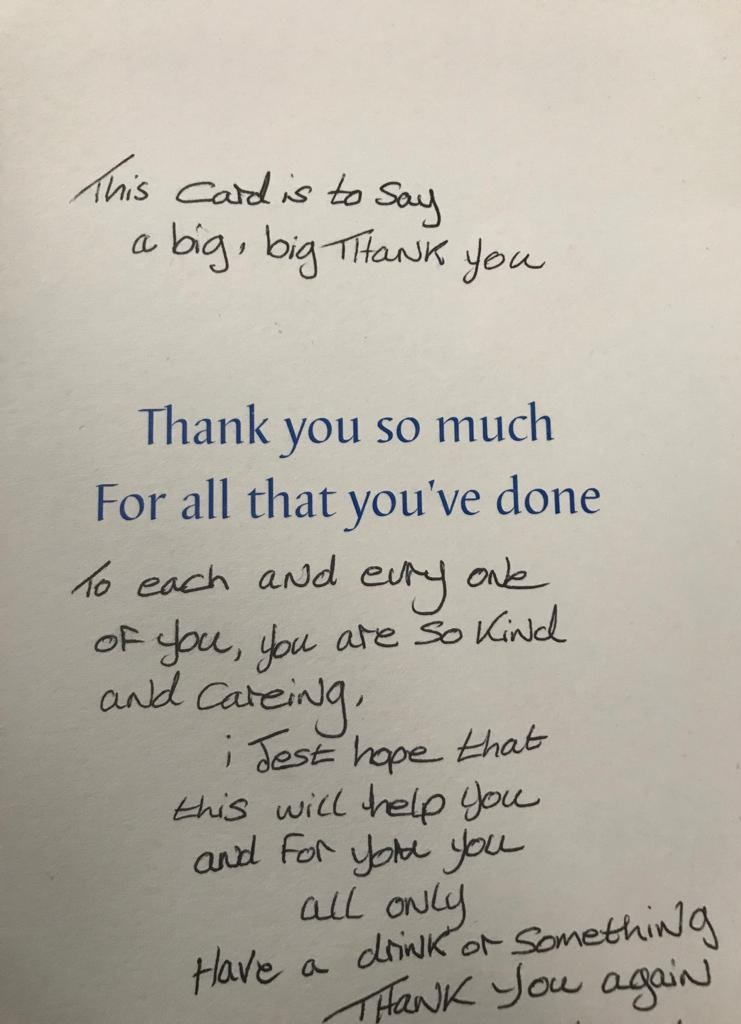 This Card is to Say
a big, big THANK you
Thank you so much
For all that you've done
To each and evry one
of you, you are so kind
and Careing,
i Jest hope that
this will help you
and For you
all only
Have a drink or Something
THANK You again